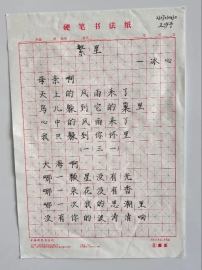 硬笔书法纸
繁星
—冰心
母亲啊
天上的风雨来了
鸟儿躲到它的巢里
心中的风雨来了
我只躲到你怀里
(一三一)
大海啊
哪一颗星没有光
哪一朵花没有香
哪一次我的思潮里
没有你的波涛清响